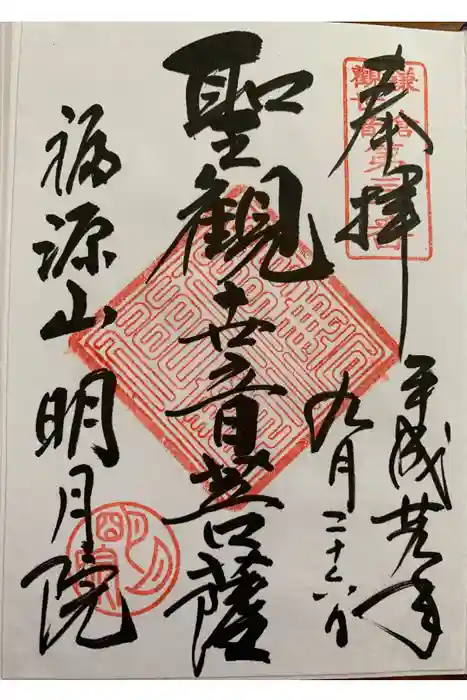 奉拝
鎌倉
觀世音
第三十番
平成
年
九月二十六日
聖観世音菩薩
福源山明月院